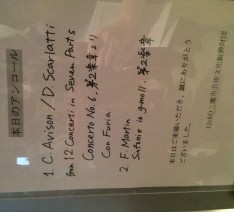 本日のアンコール
1. C. Avison / D. Scarlatti
from 12 Concerti in Seven Parts
Concerto No.6, 第2楽章より
Con Furia
2. F. Martin
Sinfonie in g moll. 第2楽章
本日はご来場いただき、誠にありがとう
ございました。
(公財)三鷹市芸術文化振興財団